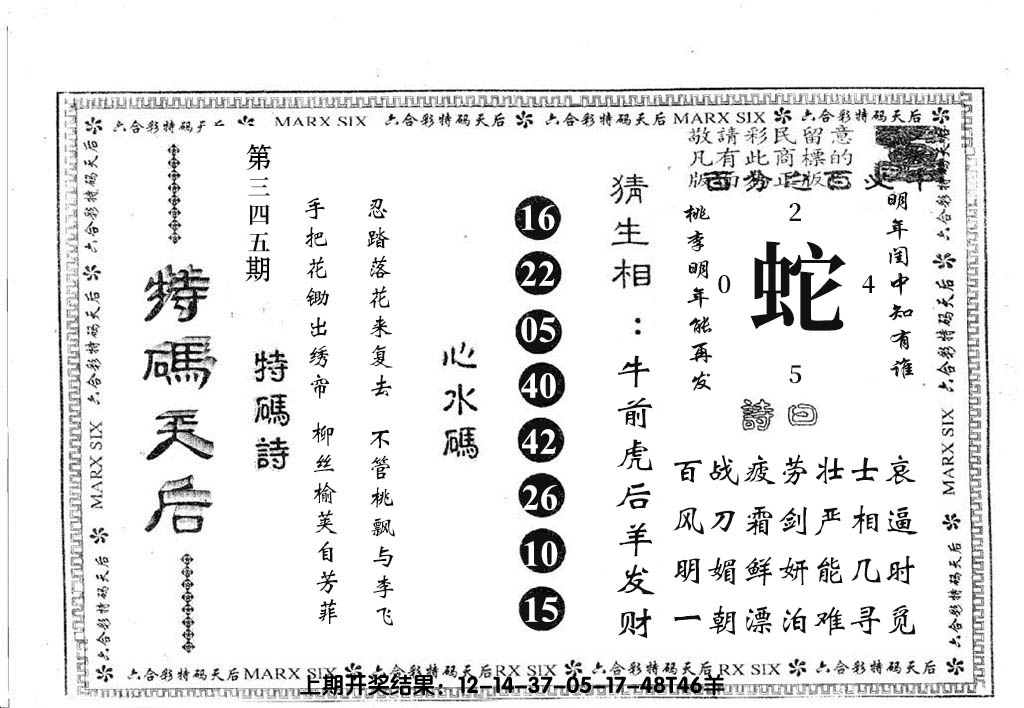 六合彩特码天后 MARX SIX 六合彩特码天后 六合彩特码天后 MARX SIX 六合彩特码天后
敬請彩民留意
凡有此商標的
版面为正版
特碼天后
第三四五期
特碼詩
手把花锄出绣帘 柳丝榆荚自芳菲
忍踏落花来复去 不管桃飘与李飞
心水碼
16
22
05
40
42
26
10
15
猜生相：牛前虎后羊发财
桃李明年能再发
2
0
蛇
4
5
明年闺中知有谁
詩曰
百战疲劳壮士哀
风刀霜剑严相逼
明媚鲜妍能几时
一朝漂泊难寻觅
六合彩特码天后 MARX SIX 六合彩特码天后
六合彩特码天后 MARX SIX 六合彩特码天后
六合彩特码天后 MARX SIX 六合彩特码天后 RX SIX 六合彩特码天后 RX SIX 六合彩特码天后
上期开奖结果：12-14-37-05-17-48T46羊